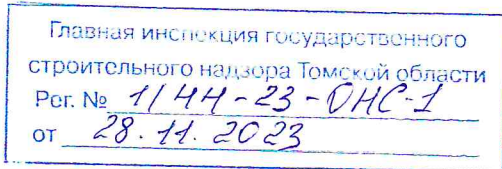 Главная инспекция государственного
строительного надзора Томской области
Рег. № 1/44-23-ОНС-1
от 28.11.2023